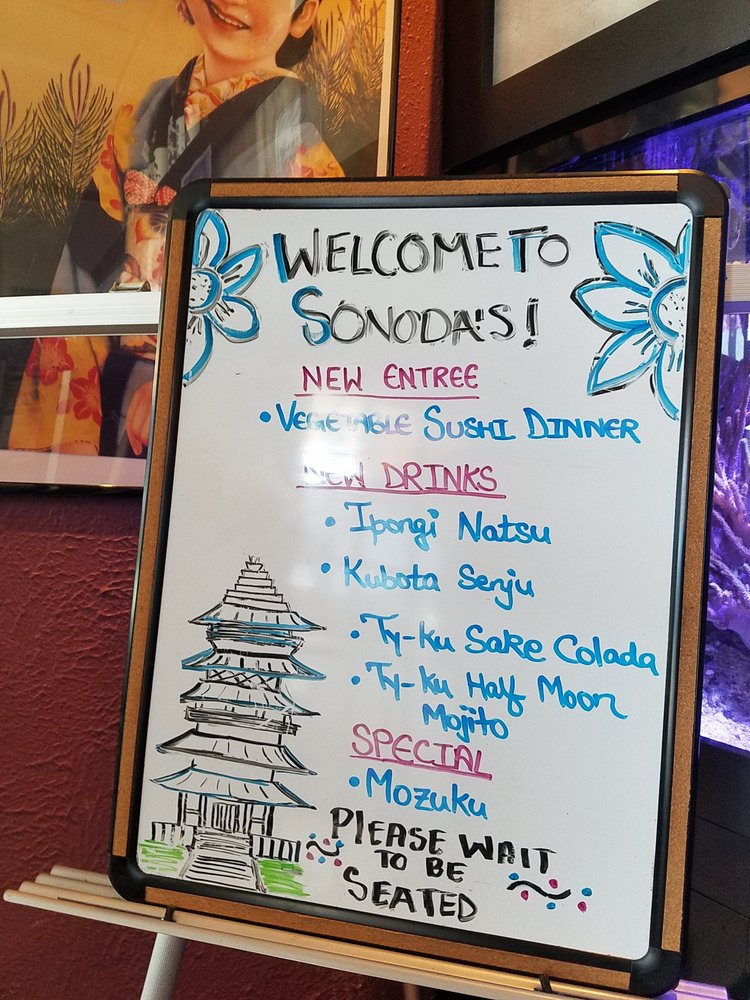 WELCOME TO
SONODA'S!
NEW ENTREE
• VEGETABLE SUSHI DINNER
NEW DRINKS
• Ipongi Natsu
• Kubota Senju
• Ty-Ku Sake Colada
• Ty-Ku Half Moon
Mojito
SPECIAL
• Mozuku
PLEASE WAIT
TO BE
SEATED